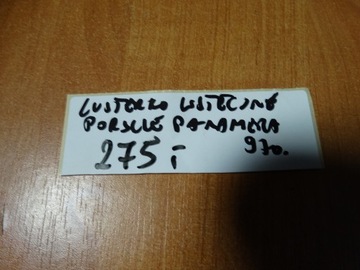 LUSTERKO WSTECZNE
PORSCHE PANAMERA
275,- 970.